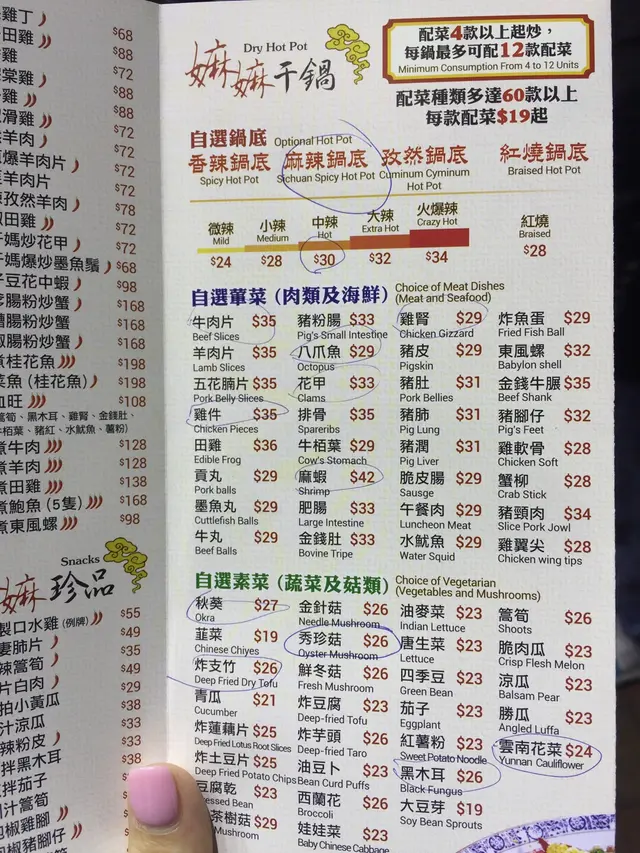 $68
$88
$72
$88
$88
$72
爆羊肉片
$72
羊肉片
$72
孜然羊肉
$78
田雞
$72
媽炒花甲
$72
媽爆炒墨魚鬚 $68
豆花中蝦 $98
腸粉炒蟹 $168
腸粉炒蟹 $168
腸粉炒蟹 $168
桂花魚 $198
魚 (桂花魚) $198
血旺 $108
萵筍、黑木耳、雞腎、金錢肚、
牛栢葉、豬紅、水魷魚、薯粉)
煮牛肉 $128
煮羊肉 $128
煮田雞 $138
煮鮑魚 (5隻) $168
煮東風螺 $98
Snacks
嫲 珍品
製口水雞 (例牌) $55
妻肺片 $49
辣萵筍 $35
片白肉 $49
拍小黃瓜 $29
汁涼瓜 $38
辣粉皮 $33
拌黑木耳 $33
拌茄子 $38
汁萵筍
椒雞腳
泡椒豬腳仔
Dry Hot Pot
嫲嫲干鍋
配菜4款以上起炒，
每鍋最多可配12款配菜
Minimum Consumption From 4 to 12 Units
配菜種類多達60款以上
每款配菜$19起
自選鍋底 Optional Hot Pot
香辣鍋底 麻辣鍋底 孜然鍋底 紅燒鍋底
Spicy Hot Pot Sichuan Spicy Hot Pot Cuminum Cyminum Hot Pot Braised Hot Pot
微辣 小辣 中辣 大辣 火爆辣 紅燒
Mild Medium Hot Extra Hot Crazy Hot Braised
$24 $28 $30 $32 $34 $28
自選葷菜 (肉類及海鮮) Choice of Meat Dishes
(Meat and Seafood)
牛肉片 $35 豬粉腸 $33 雞腎 $29 炸魚蛋 $29
Beef Slices Pig's Small Intestine Chicken Gizzard Fried Fish Ball
羊肉片 $35 八爪魚 $29 豬皮 $29 東風螺 $32
Lamb Slices Octopus Pigskin Babylon shell
五花腩片 $35 花甲 $33 豬肚 $31 金錢牛腒 $35
Pork Belly Slices Clams Pork Bellies Beef Shank
雞件 $35 排骨 $35 豬肺 $31 豬腳仔 $32
Chicken Pieces Spareribs Pig Lung Pig's Feet
田雞 $36 牛栢葉 $29 豬潤 $31 雞軟骨 $28
Edible Frog Cow's Stomach Pig Liver Chicken Soft
貢丸 $29 麻蝦 $42 脆皮腸 $29 蟹柳 $28
Pork balls Shrimp Sausge Crab Stick
墨魚丸 $29 肥腸 $33 午餐肉 $29 豬頸肉 $34
Cuttlefish Balls Large Intestine Luncheon Meat Slice Pork Jowl
牛丸 $29 金錢肚 $33 水魷魚 $29 雞翼尖 $28
Beef Balls Bovine Tripe Water Squid Chicken wing tips
自選素菜 (蔬菜及菇類) Choice of Vegetarian
(Vegetables and Mushrooms)
秋葵 $27 金針菇 $26 油麥菜 $23 萵筍 $26
Okra Needle Mushroom Indian Lettuce Shoots
韮菜 $19 秀珍菇 $26 唐生菜 $23 脆肉瓜 $23
Chinese Chiyes Oyster Mushroom Lettuce Crisp Flesh Melon
炸支竹 $26 鮮冬菇 $26 四季豆 $23 涼瓜 $23
Deep Fried Dry Tofu Fresh Mushroom Green Bean Balsam Pear
青瓜 $21 炸豆腐 $23 茄子 $23 勝瓜 $23
Cucumber Deep-fried Tofu Eggplant Angled Luffa
炸蓮藕片 $25 炸芋頭 $26 紅薯粉 $23 雲南花菜 $24
Deep Fried Lotus Root Slices Deep-fried Taro Sweet Potato Noodle Yunnan Cauliflower
炸土豆片 $25 油豆卜 $23 黑木耳 $26
Deep Fried Potato Chips Bean Curd Puffs Black Fungus
豆腐乾 $23 西蘭花 $26 大豆芽 $19
essed Bean Broccoli Soy Bean Sprouts
茶樹菇 $29 娃娃菜 $23
Mushroom Baby Chinese Cabbage